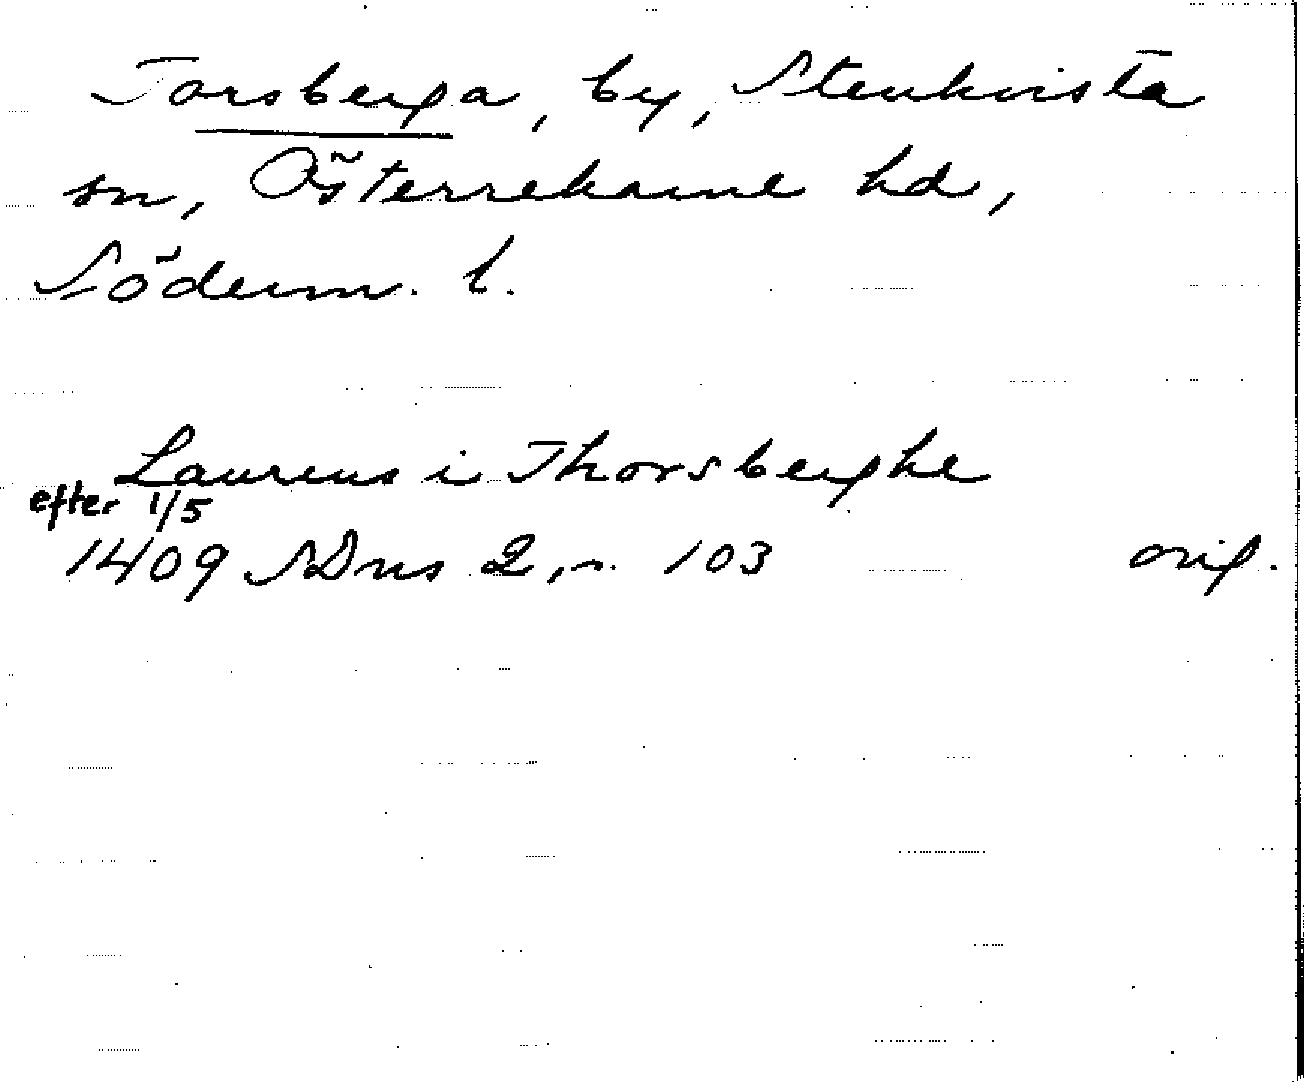 Torsberga, by, Stenkvista
sn, Österrekarne hd,
Söderm. l.
Laurens i Thorsberghe
efter 1/5
1409 SDns 2, n. 103 orig.